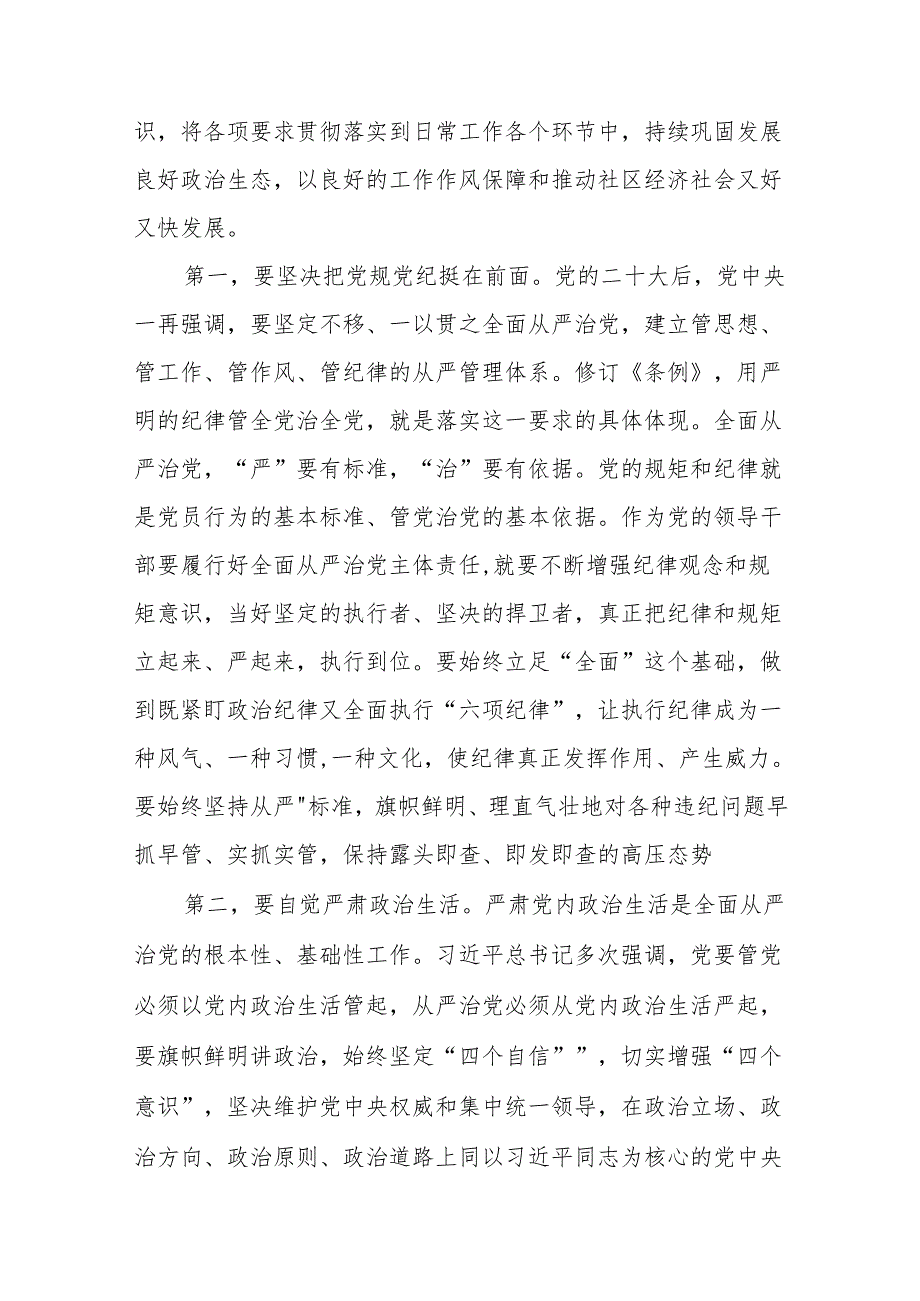 识，将各项要求贯彻落实到日常工作各个环节中，持续巩固发展
良好政治生态，以良好的工作作风保障和推动社区经济社会又好
又快发展。
第一，要坚决把党规党纪挺在前面。党的二十大后，党中央
一再强调，要坚定不移、一以贯之全面从严治党，建立管思想、
管工作、管作风、管纪律的从严管理体系。修订《条例》，用严
明的纪律管全党治全党，就是落实这一要求的具体体现。全面从
严治党，“严”要有标准，“治”要有依据。党的规矩和纪律就
是党员行为的基本标准、管党治党的基本依据。作为党的领导干
部要履行好全面从严治党主体责任,就要不断增强纪律观念和规
矩意识，当好坚定的执行者、坚决的捍卫者，真正把纪律和规矩
立起来、严起来，执行到位。要始终立足“全面”这个基础，做
到既紧盯政治纪律又全面执行“六项纪律”，让执行纪律成为一
种风气、一种习惯,一种文化，使纪律真正发挥作用、产生威力。
要始终坚持从严"标准，旗帜鲜明、理直气壮地对各种违纪问题早
抓早管、实抓实管，保持露头即查、即发即查的高压态势
第二，要自觉严肃政治生活。严肃党内政治生活是全面从严
治党的根本性、基础性工作。习近平总书记多次强调，党要管党
必须以党内政治生活管起，从严治党必须从党内政治生活严起，
要旗帜鲜明讲政治，始终坚定“四个自信””，切实增强“四个
意识”，坚决维护党中央权威和集中统一领导，在政治立场、政
治方向、政治原则、政治道路上同以习近平同志为核心的党中央